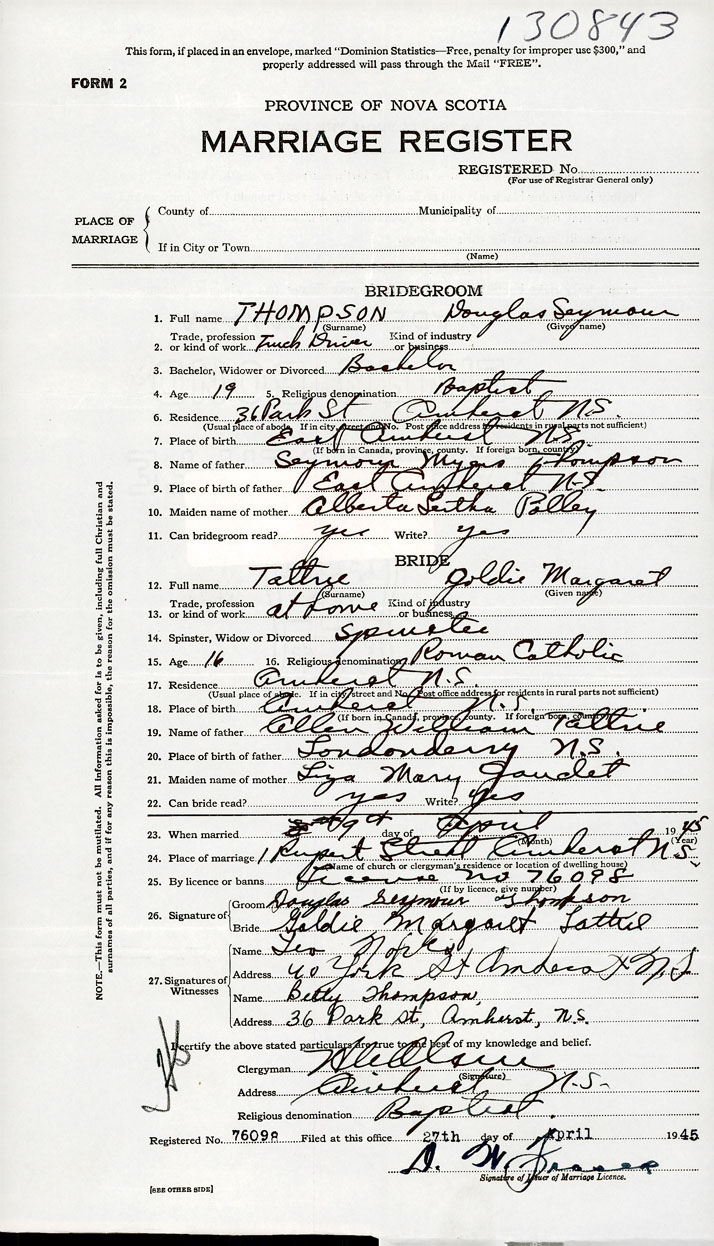 130843
This form, if placed in an envelope, marked "Dominion Statistics—Free, penalty for improper use $300," and
properly addressed will pass through the Mail "FREE".
FORM 2
PROVINCE OF NOVA SCOTIA
MARRIAGE REGISTER
REGISTERED No.
(For use of Registrar General only)
PLACE OF MARRIAGE
County of Municipality of
If in City or Town
(Name)
BRIDEGROOM
1. Full name THOMPSON Douglas Seymour
(Surname) (Given name)
2. Trade, profession or kind of work Truck Driver Kind of industry or business
3. Bachelor, Widower or Divorced Bachelor
4. Age 19 5. Religious denomination Baptist
6. Residence 36 Park St Amherst N.S.
(Usual place of abode. If in city, street and No. Post office address for residents in rural parts not sufficient)
7. Place of birth East Amherst N.S.
(If born in Canada, province, county. If foreign born, country)
8. Name of father Seymour Myers Thompson
9. Place of birth of father East Amherst N.S.
10. Maiden name of mother Alberta Polley
11. Can bridegroom read? yes Write? yes
BRIDE
12. Full name Tattrie Goldie Margaret
(Surname) (Given name)
13. Trade, profession or kind of work at home Kind of industry or business
14. Spinster, Widow or Divorced Spinster
15. Age 16 16. Religious denomination Roman Catholic
17. Residence Amherst N.S.
(Usual place of abode. If in city, street and No. Post office address for residents in rural parts not sufficient)
18. Place of birth Amherst N.S.
(If born in Canada, province, county. If foreign born, country)
19. Name of father Allen William Tattrie
20. Place of birth of father Londonderry N.S.
21. Maiden name of mother Liza Mary Gaudet
22. Can bride read? yes Write? yes
23. When married 9th day of April 1945
(Month) (Year)
24. Place of marriage 1 Rupert Street Amherst N.S.
(Name of church or clergyman's residence or location of dwelling house)
25. By licence or banns License No 76098
(If by licence, give number)
26. Signature of Groom Douglas Seymour Thompson
Bride Goldie Margaret Tattrie
27. Signatures of Witnesses
Name Leo
Address 40 York St Amherst N.S
Name Betty Thompson,
Address 36 Park st, Amherst, N.S.
I certify the above stated particulars are true to the best of my knowledge and belief.
Clergyman
(Signature)
Address Amherst N.S.
Religious denomination Baptist.
Registered No. 76098 Filed at this office 27th day of April 1945
D. W. Fraser
Signature of Issuer of Marriage Licence.
[SEE OTHER SIDE]
NOTE.—This form must not be mutilated. All information asked for is to be given, including full Christian and
surnames of all parties, and if for any reason this is impossible, the reason for the omission must be stated.